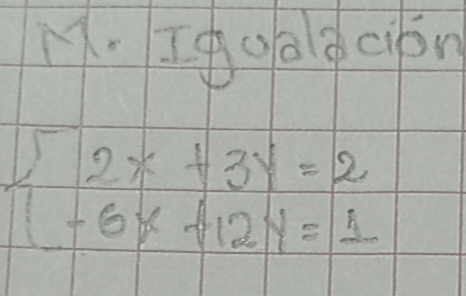 M. Igualación
2x + 3y = 2
-6x + 12y = 1